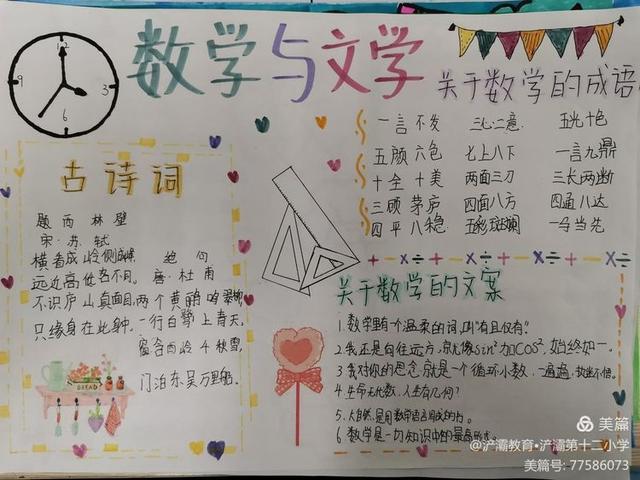 数学与文学
12
9
3
6
关于数学的成语
一言不发 三心二意 五光十色
五颜六色 七上八下 一言九鼎
十全十美 两面三刀 三长两断
三顾茅庐 四面八方 四通八达
四平八稳 五彩斑斓 一马当先
古诗词
题西林壁
宋·苏轼
横看成岭侧成峰
远近高低各不同。
不识庐山真面目,
只缘身在此山中。
绝句
唐·杜甫
两个黄鹂鸣翠柳,
一行白鹭上青天,
窗含西岭千秋雪,
门泊东吴万里船。
BREAD
+-×÷-+-×÷-+-×÷-+×÷
关于数学的文案
1.数学里有个温柔的词,叫"有且仅有"
2.我还是向往远方,就像sin²加cos²,始终如一。
3.我对你的思念就是一个循环小数,一遍遍,执迷不悟。
4.生命无比数,人生有几何?
5.大自然是用数学语言写成的书。
6.数学是一切知识中的最高形式。
美篇
@浐灞教育·浐灞第十二小学
美篇号: 77586073